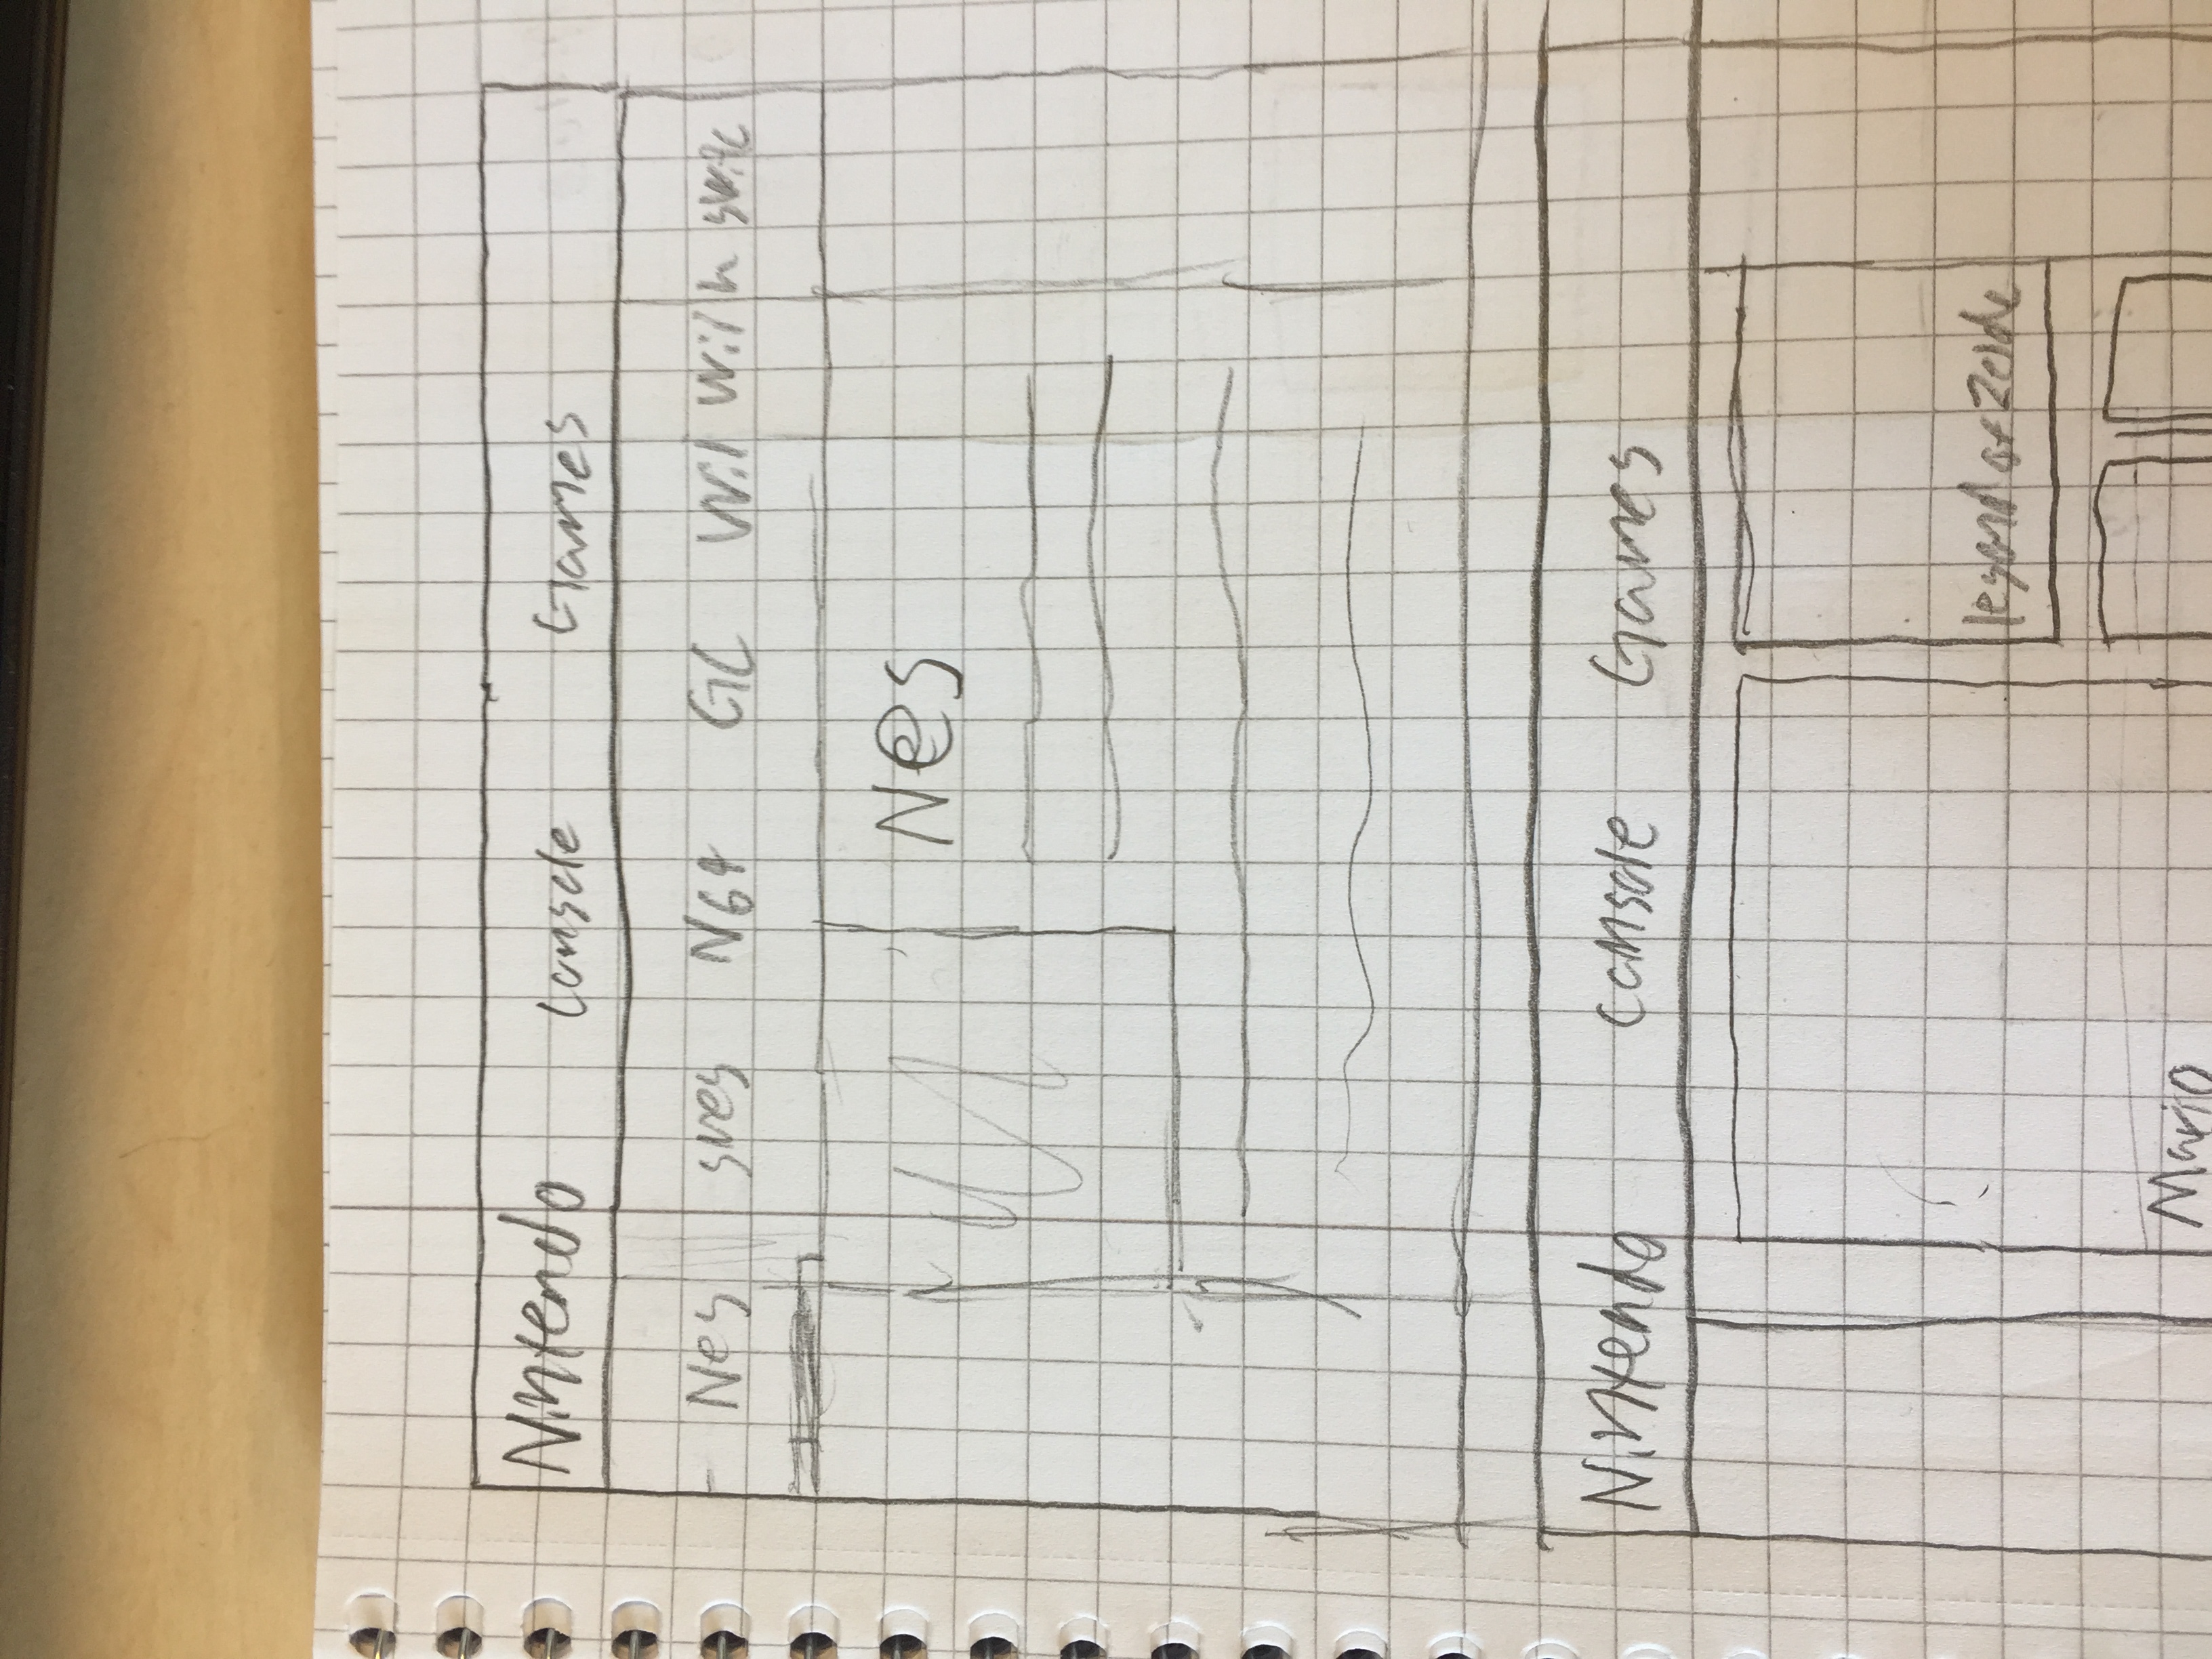 Nintendo Console Games
Nes snes N64 GC Wii Wii u switc
Nes
Nintendo Console Games
legend of Zelda
Mario